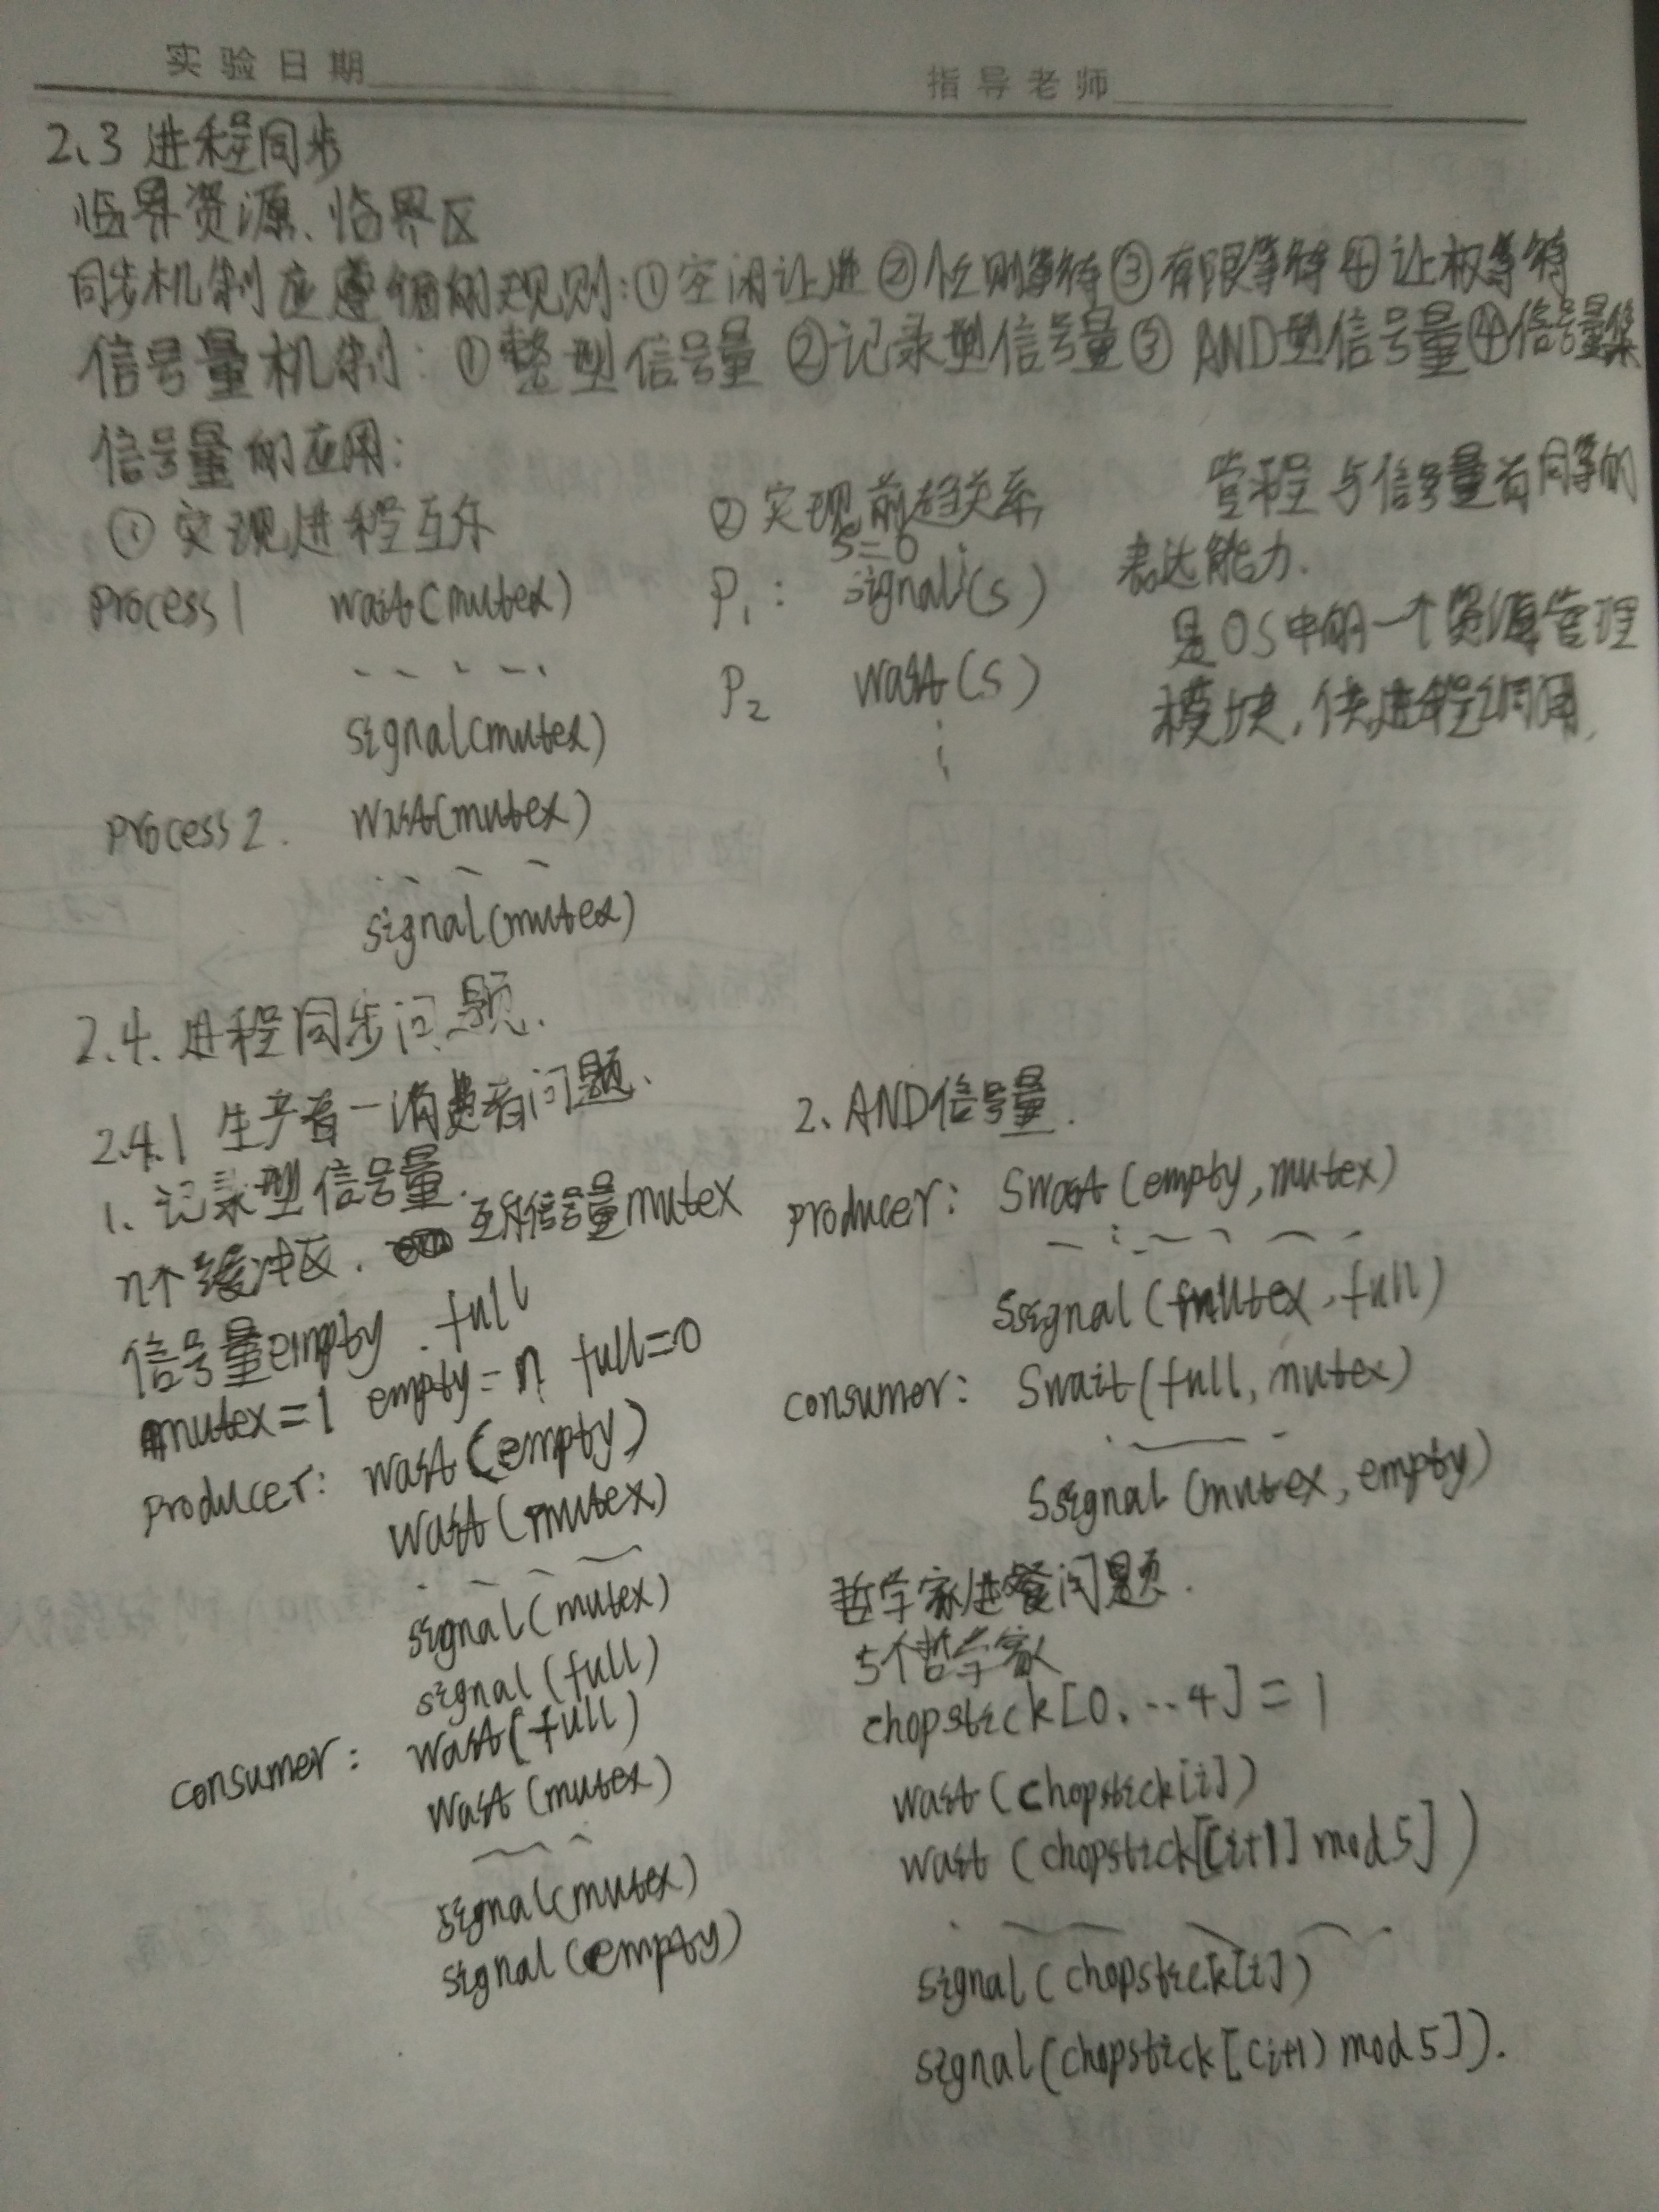 实验日期 指导老师
2.3 进程同步
临界资源、临界区
同步机制应遵循的规则:①空闲让进②忙则等待③有限等待④让权等待
信号量机制:①整型信号量 ②记录型信号量③ AND型信号量④信号量集
信号量的应用:
① 实现进程互斥
process 1 wait(mutex)
signal(mutex)
process 2. wait(mutex)
signal(mutex)
② 实现前趋关系
S=0
P₁: signal(s)
P₂ wait(s)
管程与信号量有同等的
表达能力.
是OS中的一个资源管理
模块,供进程调用.
2.4. 进程同步问题.
2.4.1 生产者—消费者问题.
1. 记录型信号量.
n个缓冲区. 互斥信号量mutex
信号量empty . full
mutex=1 empty=n full=0
producer: wait(empty)
wait(mutex)
signal(mutex)
signal(full)
consumer: wait(full)
wait(mutex)
signal(mutex)
signal(empty)
2. AND信号量.
producer: Swait(empty,mutex)
Ssignal(mutex,full)
consumer: Swait(full,mutex)
Ssignal(mutex,empty)
哲学家进餐问题.
5个哲学家
chopstick[0,...4]=1
wait(chopstick[i])
wait(chopstick[[i+1] mod 5])
signal(chopstick[i])
signal(chopstick[(i+1) mod 5]).